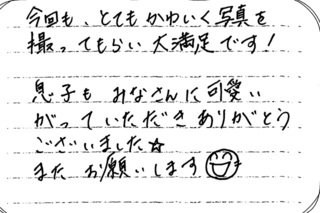 今回も、とてもかわいく写真を
撮ってもらい大満足です!
息子もみなさんに可愛い
がっていただきありがとう
ございました☆
またお願いします